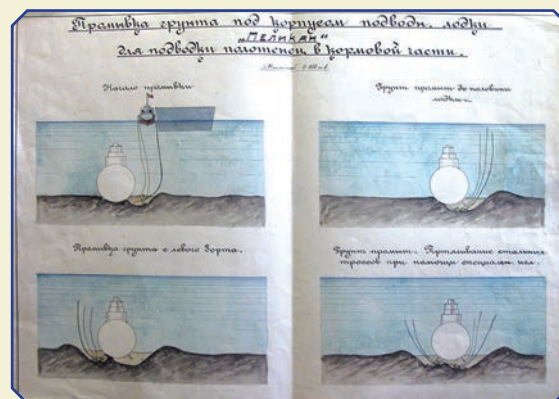 Промывка грунта под корпусом подводн. лодки
„ПЕЛИКАН“
для подводки полотенец в кормовой части.
Начало промывки
Грунт промыт до половины
лодки.
Промывка грунта с левого борта.
Грунт промыт. Протягивание стальных
тросов при помощи специальн. игл.